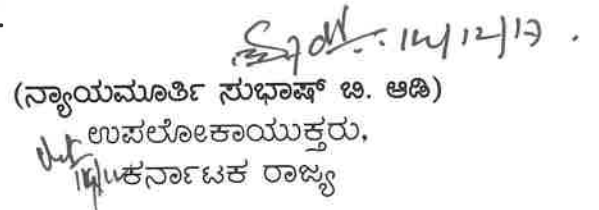 14/12/17.
(ನ್ಯಾಯಮೂರ್ತಿ ಸುಭಾಷ್ ಬಿ. ಆಡಿ)
ಉಪಲೋಕಾಯುಕ್ತರು,
ಕರ್ನಾಟಕ ರಾಜ್ಯ